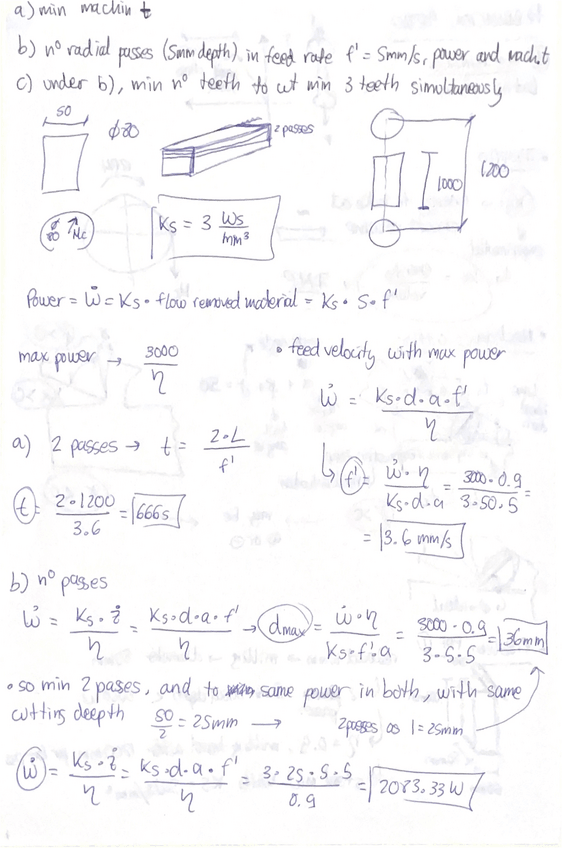 a) min machin t
b) nº radial passes (5mm depth) in feed rate f' = 5mm/s, power and mach t
c) under b), min nº teeth to cut min 3 teeth simultaneously
50
ϕ80
2 passes
1000
1200
80 Mc
Ks = 3 Ws/mm³
Power = Ẇ = Ks · flow removed material = Ks · S · f'
max power → 3000/η
• feed velocity with max power
Ẇ = Ks·d·a·f'/η
a) 2 passes → t = 2·L/f'
↳ f' = Ẇ·η/Ks·d·a = 3000·0.9/3·50·5 =
= 3.6 mm/s
t = 2·1200/3.6 = 666s
b) nº passes
Ẇ = Ks·ż/η = Ks·d·a·f'/η → dmax = Ẇ·η/Ks·f'·a = 3000·0.9/3·5·5 = 36mm
• so min 2 passes, and to same power in both, with same
cutting deepth 50/2 = 25mm → 2 passes as 1 = 25mm
Ẇ = Ks·ż/η = Ks·d·a·f'/η = 3·25·5·5/0.9 = 2083.33 W